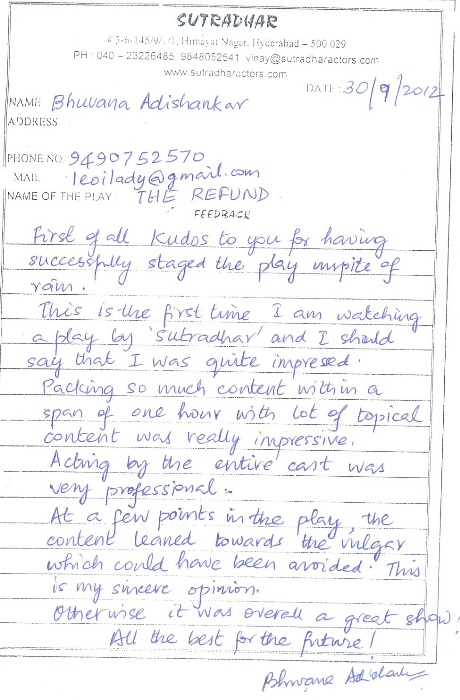 SUTRADHAR
# 3-6-145/9/1/1, Himayat Nagar, Hyderabad – 500 029
PH : 040 – 23226485 9848052541 vinay@sutradharactors.com
www.sutradharactors.com
DATE : 30/9/2012
NAME Bhuvana Adishankar
ADDRESS :
PHONE NO. 9490752570
MAIL : leoilady@gmail.com
NAME OF THE PLAY : THE REFUND
FEEDBACK
First of all Kudos to you for having
successfully staged the play inspite of
rain.
This is the first time I am watching
a play by 'Sutradhar' and I should
say that I was quite impresed.
Packing so much content within a
span of one hour with lot of topical
content was really impressive.
Acting by the entire cast was
very professional.
At a few points in the play, the
content leaned towards the vulgar
which could have been avoided. This
is my sincere opinion.
Otherwise it was overall a great show!
All the best for the future!
Bhuvana Adishankar